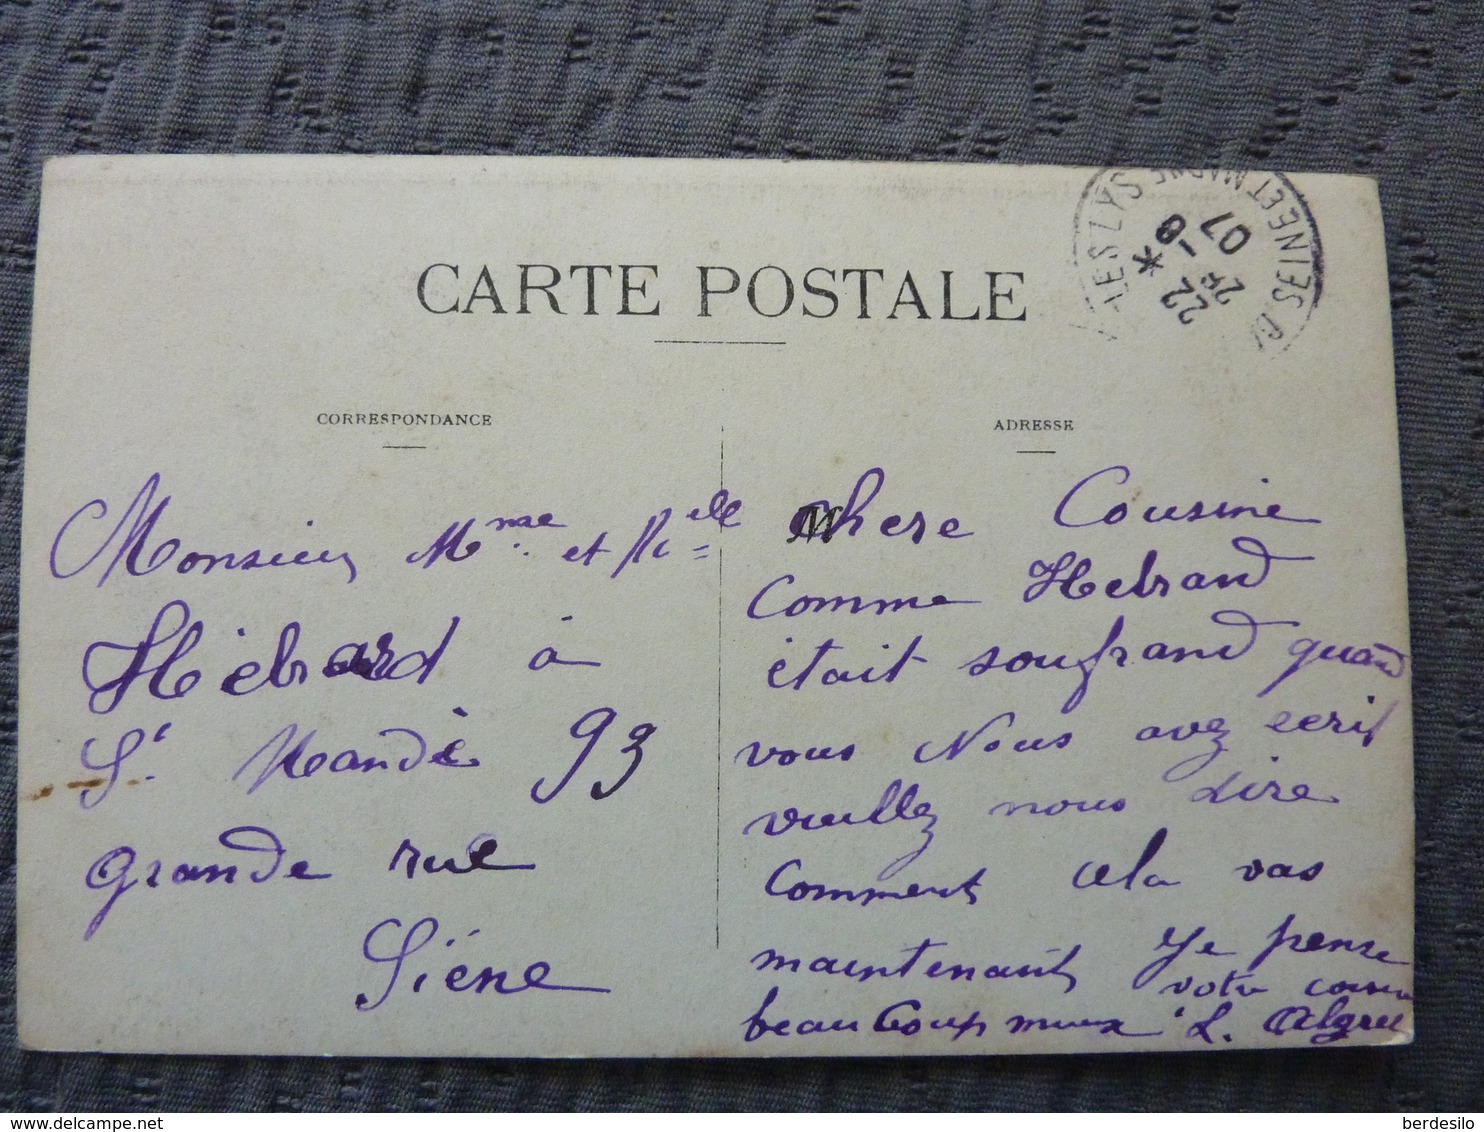 CARTE POSTALE
CORRESPONDANCE
ADRESSE
SEINE ET MARNE
22
26 -6
07
Monsieur Mme et Mlle
Hébard à
St Mandé 93
grande rue
Siène
chere Cousine
Comme Hebrard
était soufrand quand
vous Nous avez ecrit
veuillez nous dire
comment cela vas
maintenant Je pense
beaucoup mieux
votre cousin
L.
delcampe.net
berdesilo